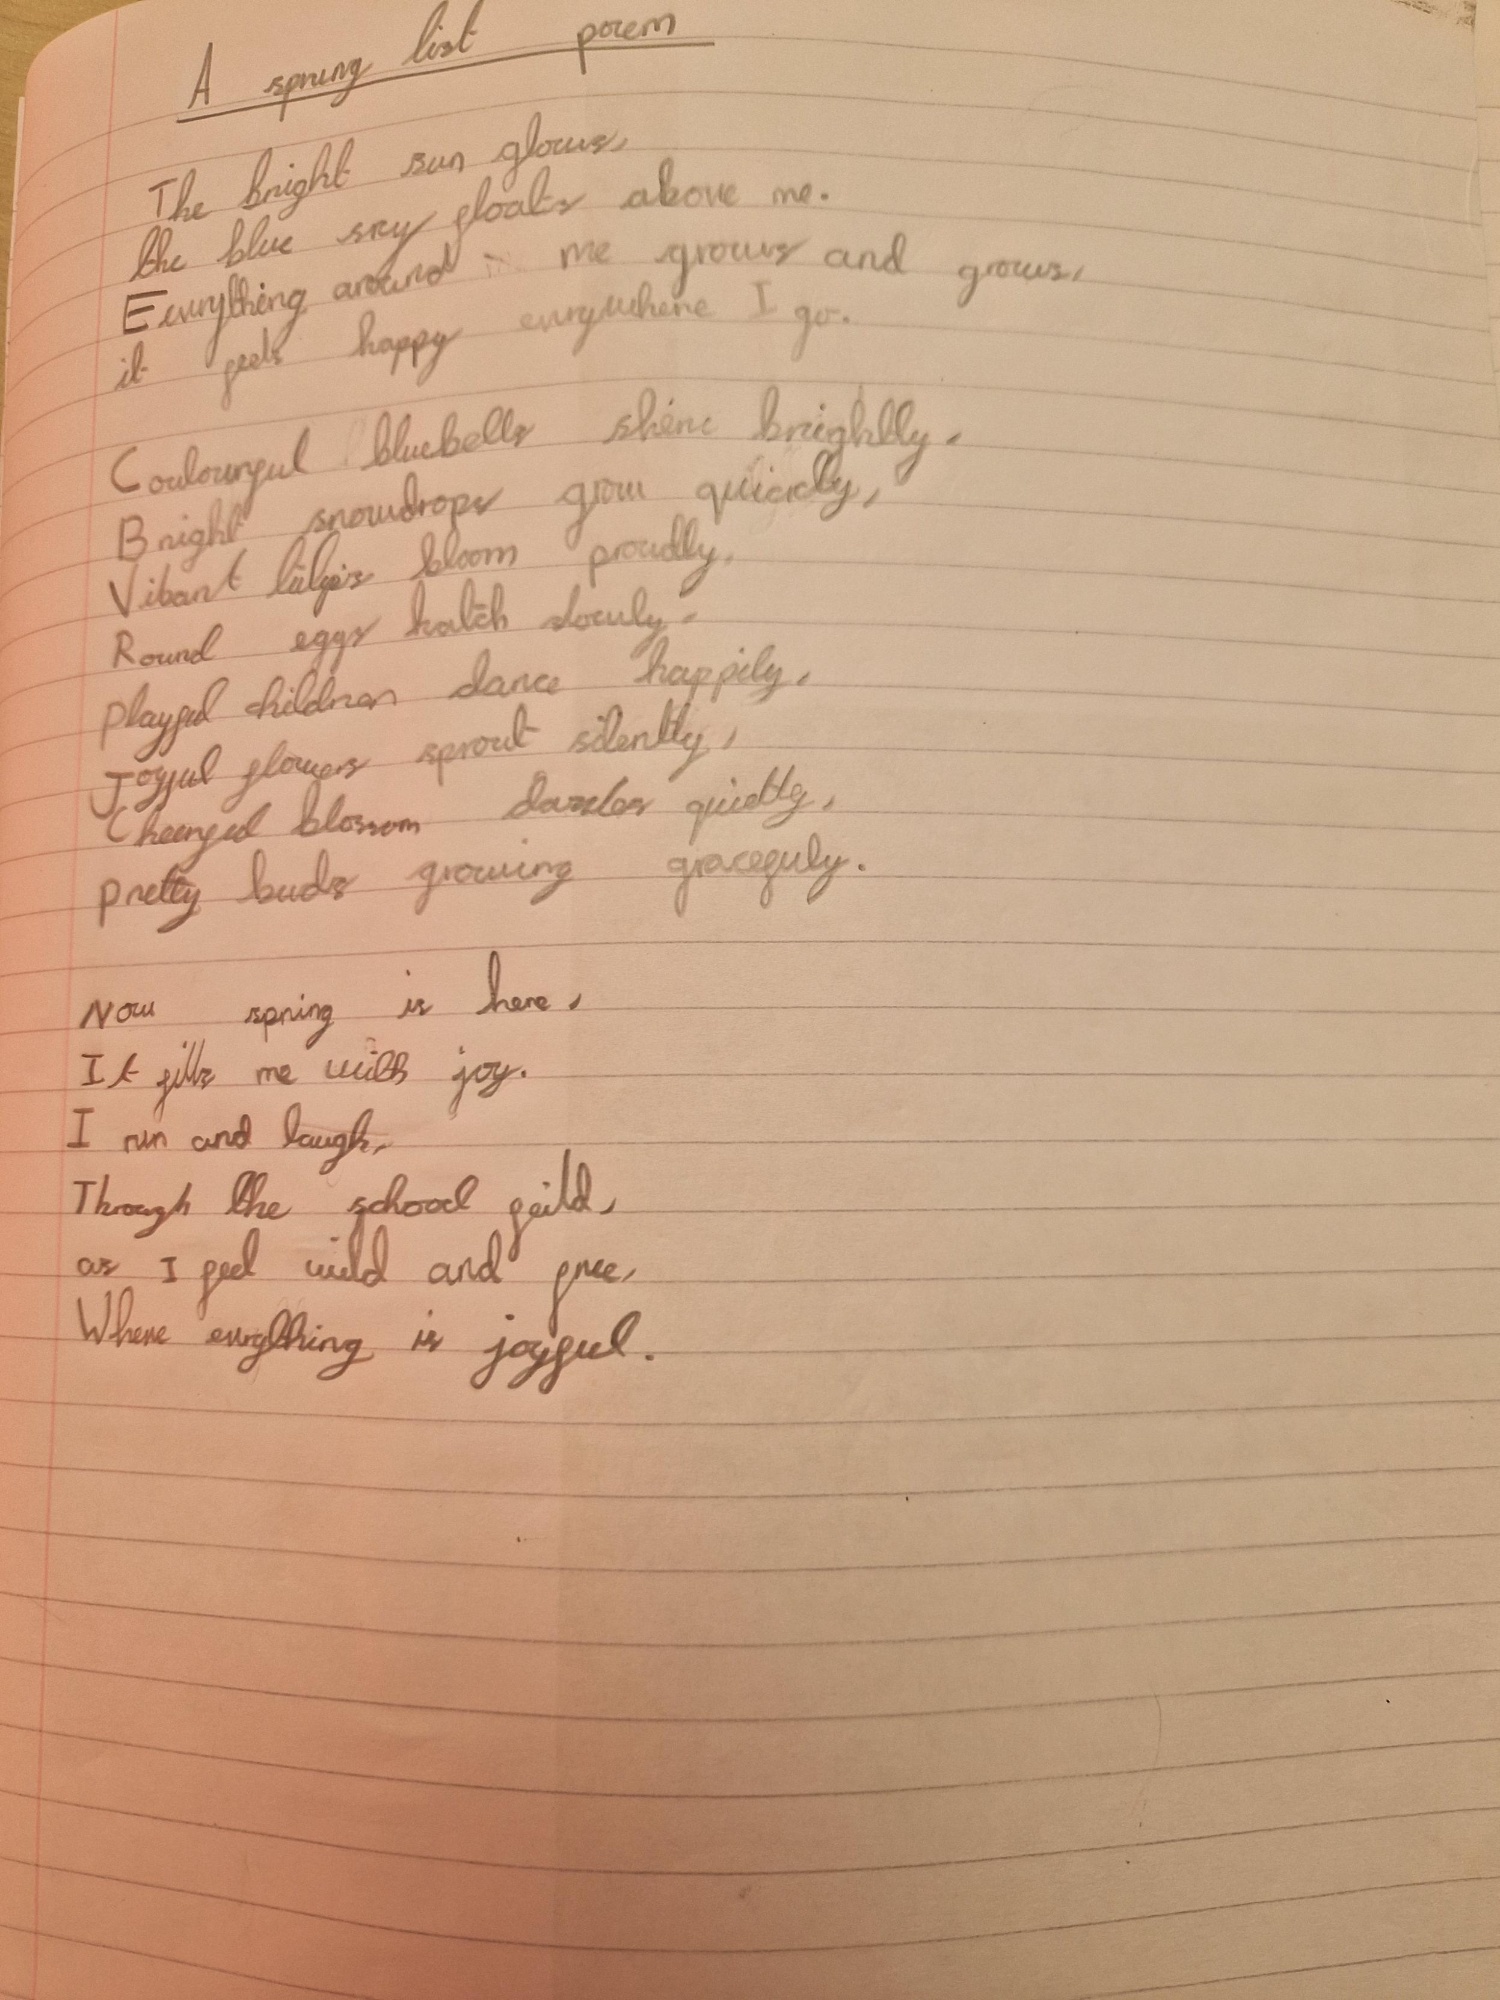 A spring list poem
The bright sun glows,
the blue sky floats above me.
Everything around me grows and grows,
it feels happy everywhere I go.
Coulourful bluebells shine brightly,
Bright snowdrops grow quickly,
Vibant bloom proudly,
Round eggs hatch slowly,
Playful children dance happily,
Joyful flowers sprout silently,
Cheerful blossom dazzles quietly,
Pretty buds growing gracefuly.
Now spring is here,
It fills me with joy.
I run and laugh,
Through the school feild,
as I feel wild and free,
Where everything is joyful.